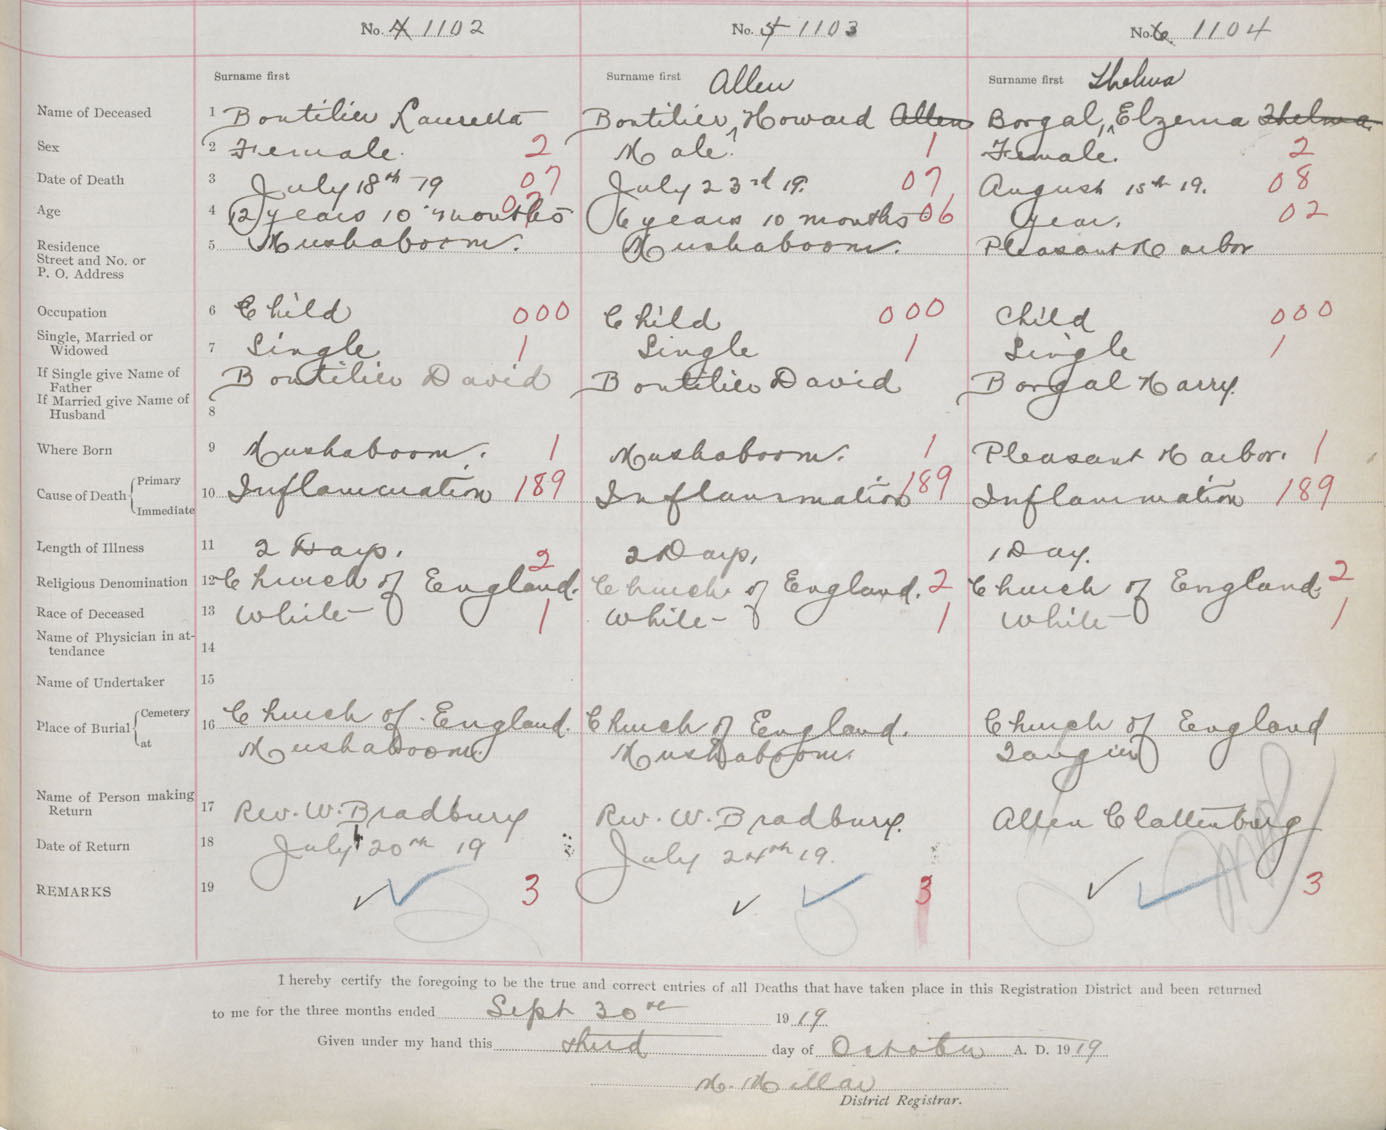 No. 4 1102 No. 5 1103 No. 6 1104
Surname first Surname first Allen Surname first Thelma
Name of Deceased 1 Boutilier Lauretta Boutilier, Howard Allen Borgal, Elzema Thelma
Sex 2 Female. 2 Male. 1 Female. 2
Date of Death 3 July 18th 19 07 July 23rd 19. 07 August 15th 19. 08
Age 4 12 years 10 months 6 years 10 months 06 1 year. 02
Residence 5 Mushaboom. Mushaboom. Pleasant Harbor
Street and No. or
P. O. Address
Occupation 6 Child 000 Child 000 Child 000
Single, Married or
Widowed 7 Single 1 Single 1 Single 1
If Single give Name of
Father Boutilier David Boutilier David Borgal Harry.
If Married give Name of
Husband 8
Where Born 9 Mushaboom. 1 Mushaboom. 1 Pleasant Harbor. 1
Cause of Death Primary
Immediate 10 Inflammation 189 Inflammation 189 Inflammation 189
Length of Illness 11 2 Days. 2 Days. 1 Day.
Religious Denomination 12 Church of England. 2 Church of England. 2 Church of England. 2
Race of Deceased 13 White 1 White 1 White 1
Name of Physician in at-
tendance 14
Name of Undertaker 15
Place of Burial Cemetery 16 Church of England. Church of England. Church of England
at Mushaboom. Mushaboom. Tangier
Name of Person making
Return 17 Rev. W. Bradbury Rev. W. Bradbury. Allen Clattenburg
Date of Return 18 July 20th 19 July 24th 19.
REMARKS 19 3 3 3
I hereby certify the foregoing to be the true and correct entries of all Deaths that have taken place in this Registration District and been returned
to me for the three months ended Sept 30th 1919
Given under my hand this third day of October A. D. 1919
H. Millar
District Registrar.